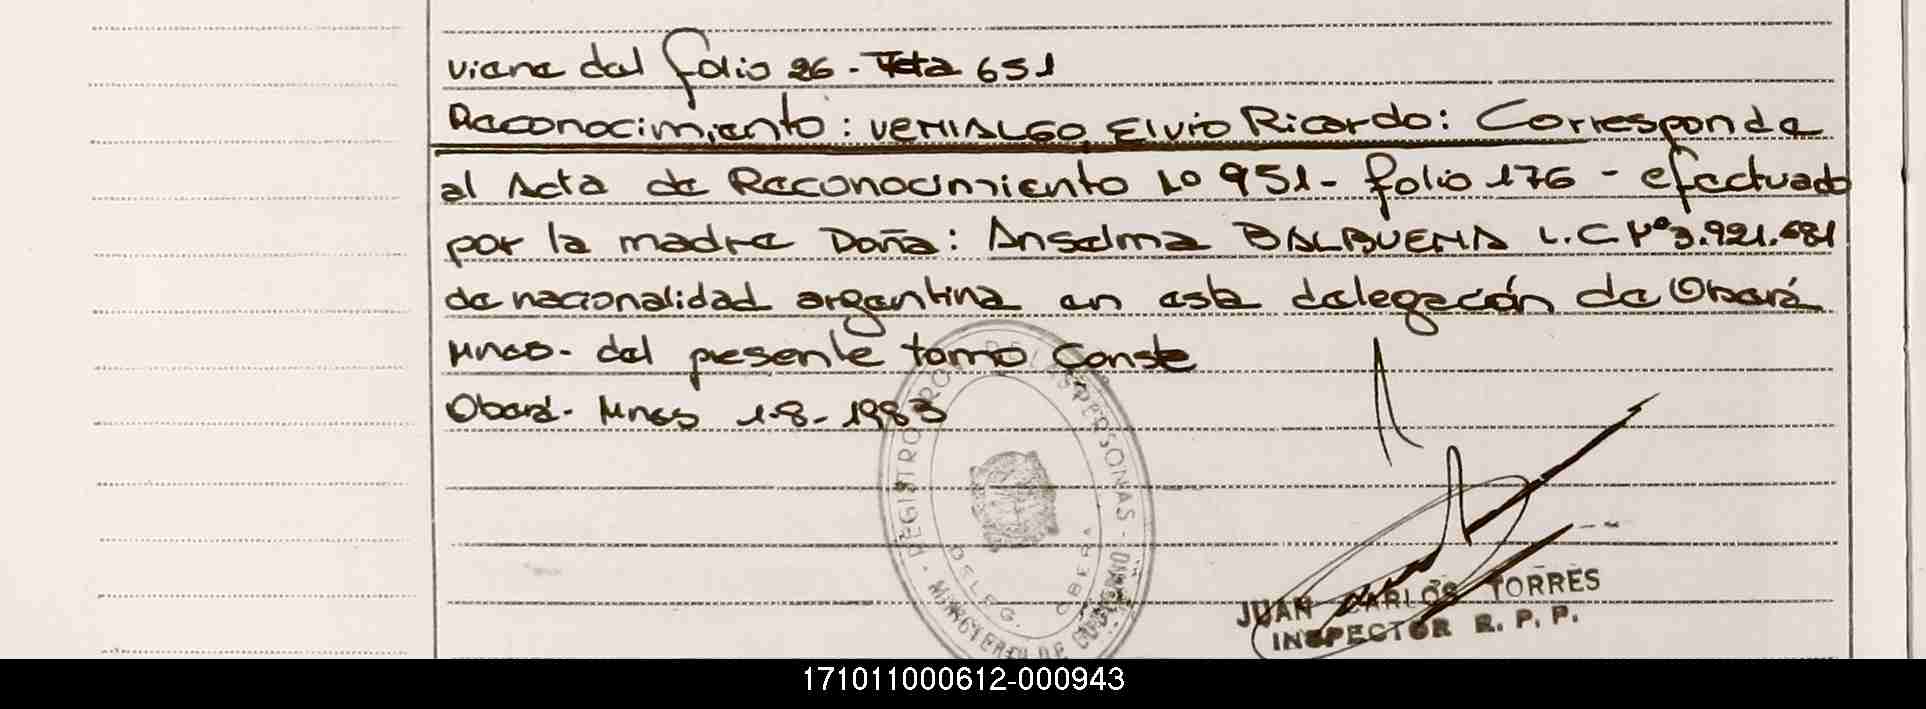 viene del folio 26 - Acta 651
Reconocimiento: VENIALGO, Elvio Ricardo: Corresponde
al Acta de Reconocimiento Nº 951 - folio 176 - efectuado
por la madre Doña: Anselma BALBUENA L.C Nº 3.921.681
de nacionalidad argentina en esta delegación de Oberá
Mnes - del presente tomo Conste
Oberá - Mnes 1-8-1983
REGISTRO PROV. DE LAS PERSONAS
DELEG. OBERA
MINISTERIO DE GOBIERNO
JUAN CARLOS TORRES
INSPECTOR R. P. P.
171011000612-000943